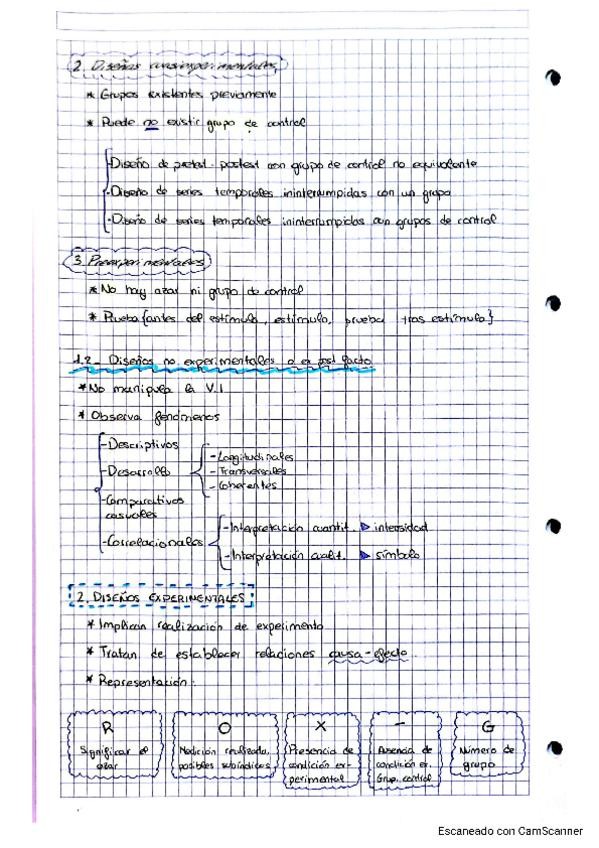 2. Diseños cuasiexperimentales
* Grupos existentes previamente
* Puede no existir grupo de control
-Diseño de pretest-postest con grupo de control no equivalente
-Diseño de series temporales ininterrumpidas con un grupo
-Diseño de series temporales ininterrumpidas con grupos de control
3. Preexperimentales
* No hay azar ni grupo de control
* Prueba {antes del estímulo, estímulo, prueba tras estímulo}
1.2- Diseños no experimentales o ex post facto
* No manipula la V.I
* Observa fenómenos
-Descriptivos
-Desarrollo
-Longitudinales
-Transversales
-Coherentes
-Comparativos
casuales
-Correlacionales
-Interpretación cuantit. ▷ intensidad
-Interpretación cualit. ▷ símbolo
2. DISEÑOS EXPERIMENTALES:
* Implican realización de experimento
* Tratan de establecer relaciones causa-efecto.
* Representación:
R
Significar el
azar
O
Medición realizada,
posibles subíndices
X
Presencia de
condición ex-
perimental
-
Ausencia de
condición ex.
Grup. control
G
Número de
grupo
Escaneado con CamScanner